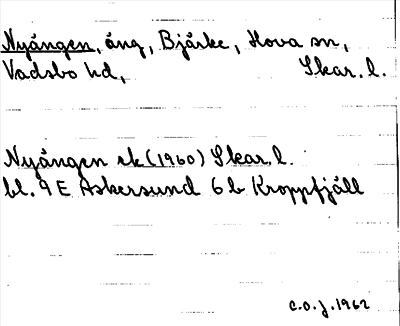 Nyängen, äng, Bjärke, Hova sn,
Vadsbo hd, Skar. l.
Nyängen ek (1960) Skar. l.
bl. 9 E Askersund 6 b Kroppfjäll
C.O.J. 1962